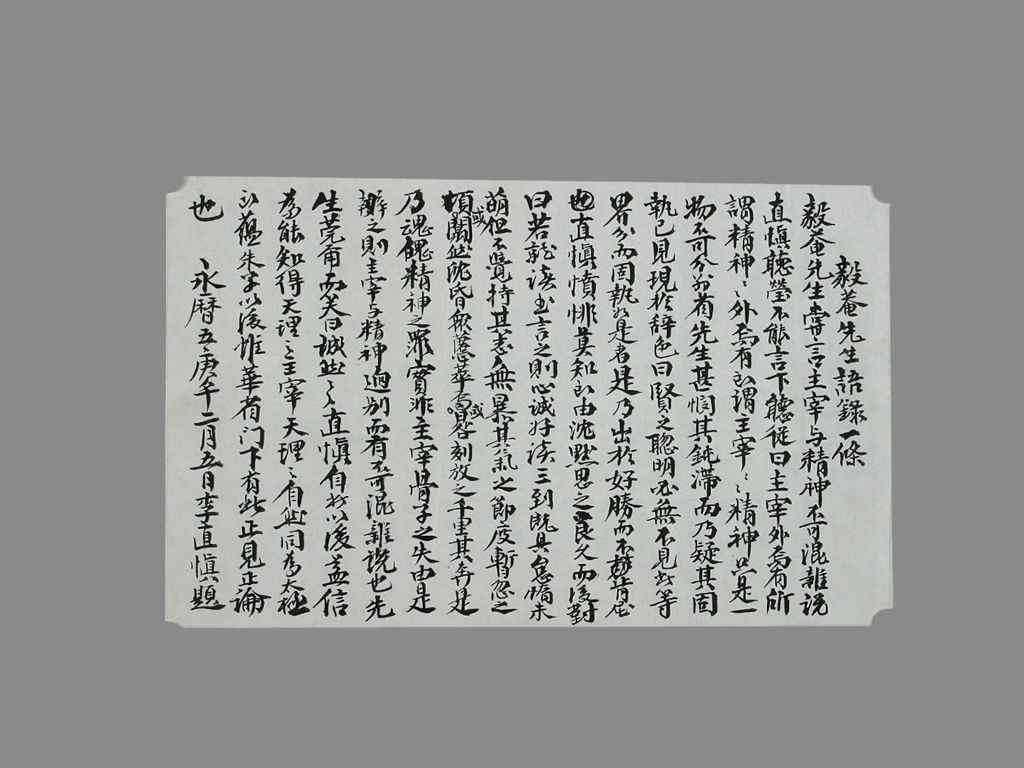 毅菴先生語錄一條
毅菴先生嘗言主宰与精神不可混雜説
直愼聽瑩不能言下聽從曰主宰外焉有所
謂精神〻外焉有所謂主宰〻〻精神只是一
物不可分別看先生甚憫其鈍滯而乃疑其固
執已見現於辞色曰賢之聡明必無不見此等
界分而固執如是者是乃出於好勝而不肯屈
也直愼憤悱莫知所由沈默思之良久而後對
曰若就讀書言之則心誠好讀三到既具怠惰未
萌但不覺持其志無暴其氣之節度暫忽之
頃或闖然沈昏或㗳刻放之千里其奔是
乃魂魄精神之罪實非主宰骨子之失由是
辨之則主宰与精神迥別而有不可混雜説也先
生莞甭而笑曰誠然〻直愼自於以後益信
為能知得天理之主宰天理之自然同為太極
所蘊朱子以後唯華省门下有此正見正論
也 永曆五庚午二月五日李直愼題